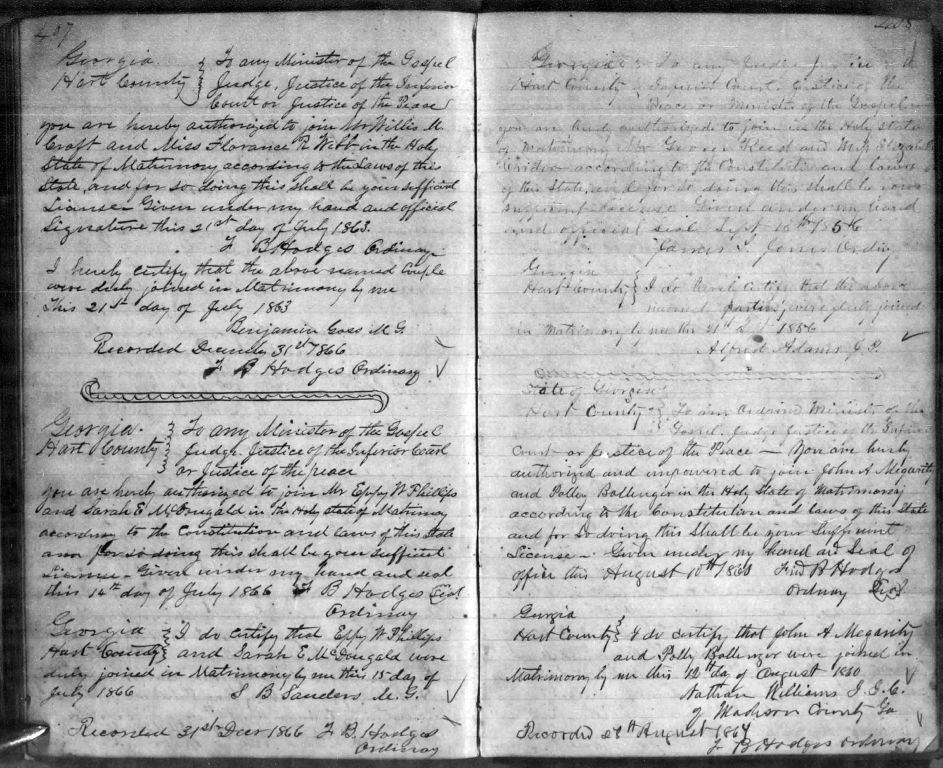 407
Georgia } To any Minister of the Gospel
Hart County } Judge, Justice of the Inferior
Court or Justice of the Peace
you are hereby authorized to join Mr Willis M.
Croft and Miss Florance R. Webb in the Holy
State of Matrimony according to the Laws of this
State, and for so doing this shall be your sufficient
License - Given under my hand and official
Signature this 21st day of July 1863.
F. B. Hodges Ordinary
I hereby certify that the above named Couple
were duly joined in Matrimony by me
This 21st day of July 1863
Benjamin Goss M. G.
Recorded December 31st 1866
F B Hodges Ordinary
Georgia } To any Minister of the Gospel
Hart County } Judge, Justice of the Inferior Court
or Justice of the peace
you are hereby authorized to join Mr Eppy W Phillips
and Sarah E McDougald in the Holy state of Matrimony
according to the Constitution and laws of this State
and for so doing this shall be your sufficient
License - Given under my hand and seal
this 14th day of July 1866 F B Hodges
Ordinary
Georgia } I do certify that Eppy W Phillips
Hart County } and Sarah E McDougald were
duly joined in Matrimony by me this 15 day of
July 1866 S B Sanders M. G.
Recorded 31st Decr 1866 F B. Hodges
Ordinary
408
Georgia } To any Judge
Hart County } Inferior Court, Justice of the
Peace or Minister of the Gospel
you are hereby authorized to join in the Holy state
of Matrimony Mr George and Miss Elizabeth
according to the Constitution and laws
of this State, and for so doing this shall be your
sufficient License Given under my hand
and official seal Sept 1856
James Jones Ordny
Georgia
Hart County } I do hereby certify that the above
named parties were duly joined
in Matrimony by me the 21st 1856
Alfred Adams J. P.
State of Georgia
Hart County } To any ordained Minister of the
Gospel, Judge Justice of the Inferior
Court or Justice of the Peace - You are hereby
authorized and empowered to join John A Megarity
and Polley Bollenger in the Holy State of Matrimony
according to the Constitution and laws of this State
and for So doing this Shall be your Sufficient
License - Given under my hand and Seal of
office this August 10th 1860 Fred B Hodges
Ordinary
Georgia
Hart County } I do certify that John A Megarity
and Polly Bollenger were joined in
Matrimony by me this 12th day of August 1860
Nathan Williams J. I. C.
of Madison County Ga
Recorded 27th August 1867
F B Hodges Ordinary